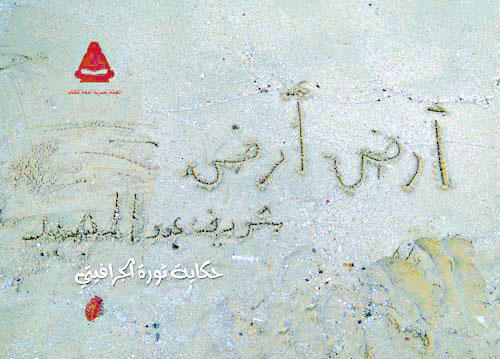 الهيئة المصرية العامة للكتاب
أرض أرض
شريف عبد المجيد
حكاية ثورة الجرافيتي